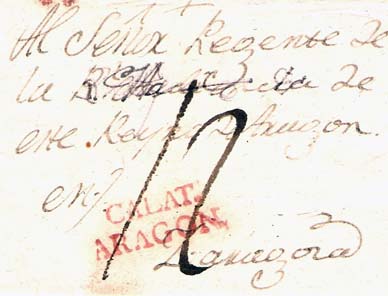 Al Señor Regente de
la R.l Audiencia de
este Reyno D Aragon.
en
12
CALAT.
ARAGON.
Zaragoza